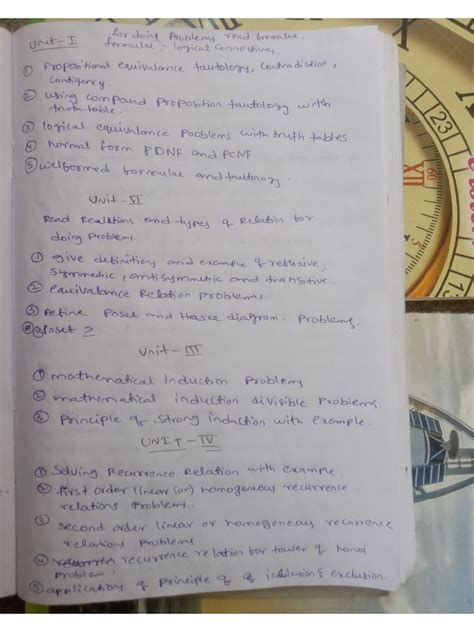 Unit-I for doing Problems read formulae.
formulae:- logical Connectives.
① Propositional equivalance tautology, Contradiction,
Contigency.
② using compound Proposition tautology with
truth table.
③ logical equivalance Pooblems with truth tables
④ Normal form PDNF and PCNF
⑤ welformed formulae and tautology.
Unit-II
Read Realtions and types of Relation for
doing Problems.
① give definitions and example of reflexive,
Symmetric, antisymmetric and transitive.
② equivalance Relation Problems.
③ Define Poset and Hasee diagram. Problems.
Unit-III
① mathematical induction Problems
② mathematical induction divisible Problems.
③ Principle of Strong induction with example.
UNIT-IV
① Solving Recurrence Relation with example.
② first order linear (or) homogeneous recurrence
relations Problems.
③ second order linear or homogeneous recurrence
relations Problems
④ recurrence relation for tower of honoi
Problem.
⑤ applications of principle of of inclusion & exclusion.
XII
60
5